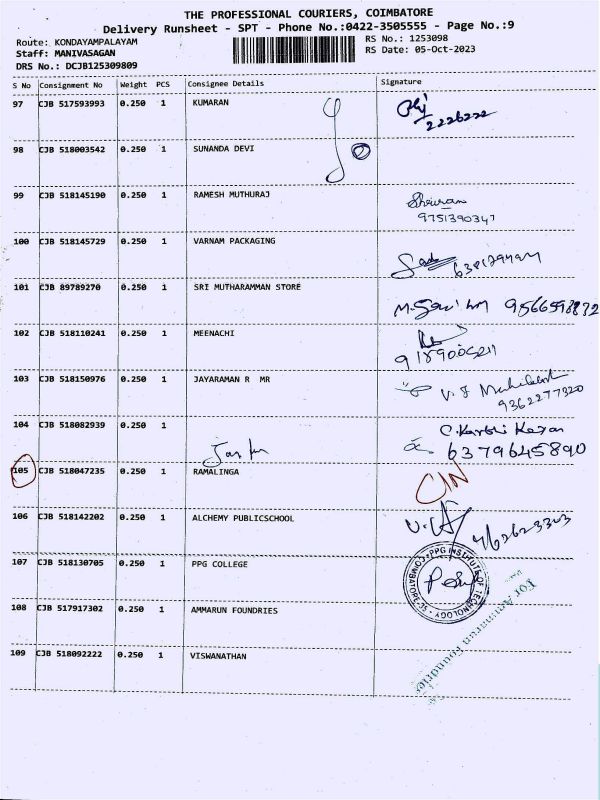 THE PROFESSIONAL COURIERS, COIMBATORE
Delivery Runsheet - SPT - Phone No.:0422-3505555 - Page No.:9
Route: KONDAYAMPALAYAM
RS No.: 1253098
Staff: MANIVASAGAN
RS Date: 05-Oct-2023
DRS No.: DCJB125309809
S No Consignment No Weight PCS Consignee Details Signature
97 CJB 517593993 0.250 1 KUMARAN
2226222
98 CJB 518003542 0.250 1 SUNANDA DEVI
99 CJB 518145190 0.250 1 RAMESH MUTHURAJ
9751390347
100 CJB 518145729 0.250 1 VARNAM PACKAGING
101 CJB 89789270 0.250 1 SRI MUTHARAMMAN STORE
9566598872
102 CJB 518110241 0.250 1 MEENACHI
103 CJB 518150976 0.250 1 JAYARAMAN R MR
9362277320
104 CJB 518082939 0.250 1
6379645890
105 CJB 518047235 0.250 1 RAMALINGA
CIN
106 CJB 518142202 0.250 1 ALCHEMY PUBLICSCHOOL
107 CJB 518130705 1 0.250 1 PPG COLLEGE
PPG INSTITUTE OF TECHNOLOGY
108 CJB 517917302 0.250 1 AMMARUN FOUNDRIES
For Ammarun Foundries
109 CJB 518092222 0.250 1 VISWANATHAN